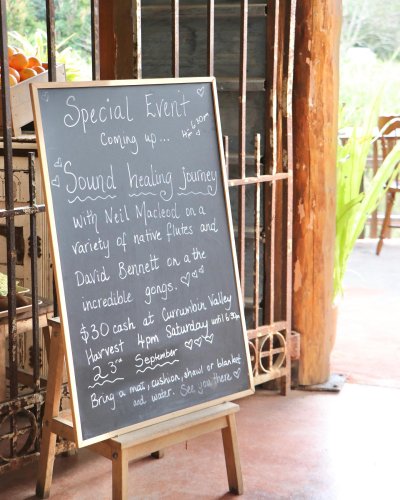 Special Event
Coming up...
4-6.30pm
Sound healing journey
with Neil Macleod on a
variety of native flutes and
David Bennett on a the
incredible gongs.
$30 cash at Currumbin Valley
Harvest 4pm Saturday until 6.30pm
23rd September
Bring a mat, cushion, shawl or blanket
and water. See you there